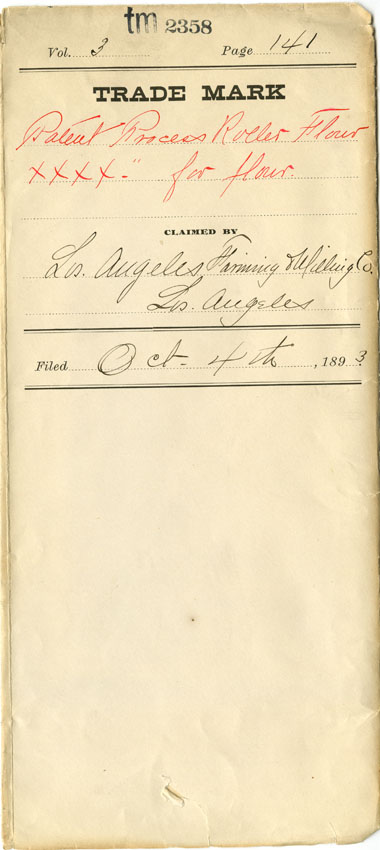 tm 2358
Vol. 3 Page 141
TRADE MARK
Patent Process Roller Flour
XXXX." for flour.
CLAIMED BY
Los Angeles Farming & Milling Co.
Los Angeles
Filed Oct. 4th, 1893